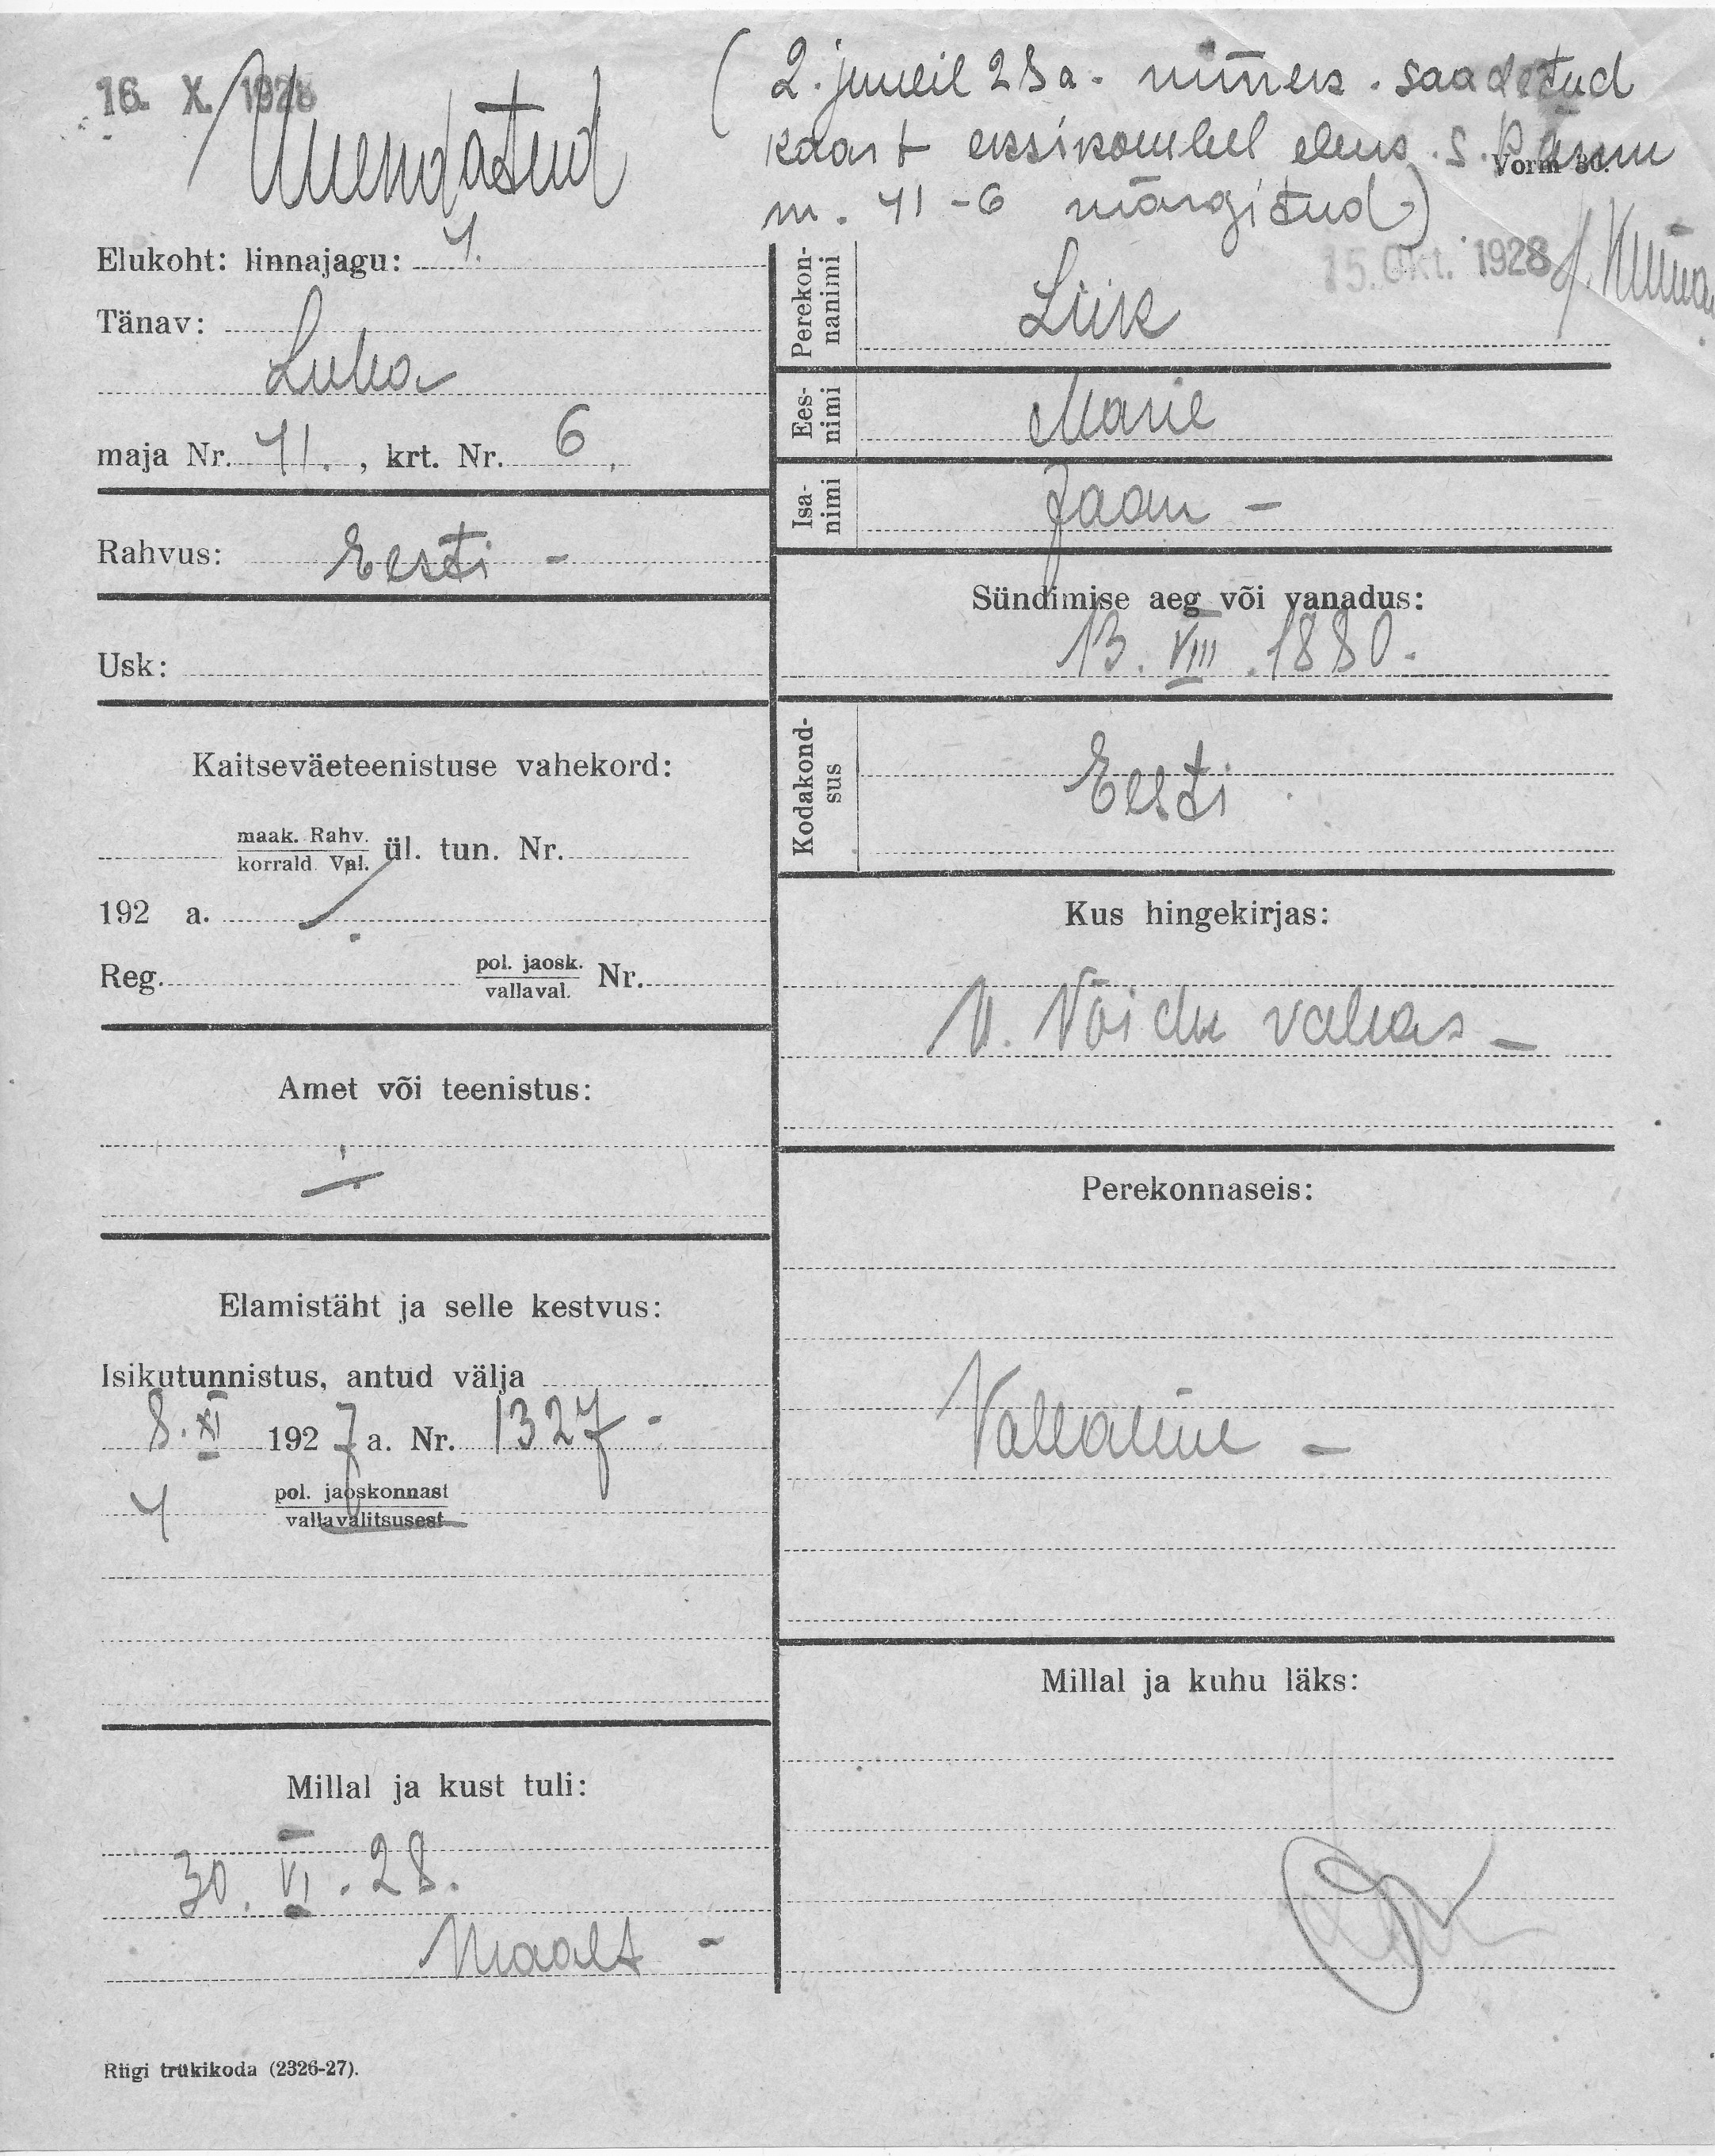 16. X. 1928
Uuendatud
(2. juulil 28 a. nimek. saadetud
kaart eksikombel
m. 41-6 märgitud)
Vorm 30.
15. Okt. 1928
Elukoht: linnajagu: 4.
Tänav:
Luha
maja Nr. 41., krt. Nr. 6.
Rahvus: Eesti -
Usk:
Kaitseväeteenistuse vahekord:
maak. Rahv.
korrald. Val. ül. tun. Nr.
192 a.
Reg. pol. jaosk.
vallaval. Nr.
Amet või teenistus:
Elamistäht ja selle kestvus:
Isikutunnistus, antud välja
8. XI 1927 a. Nr. 1327 -
4 pol. jaoskonnast
vallavalitsusest
Millal ja kust tuli:
30. VI. 28.
Maalt -
Riigi trükikoda (2326-27).
Perekon-
nanimi
Liik
Ees-
nimi
Marie
Isa-
nimi
Jaan -
Sündimise aeg või vanadus:
13. VIII. 1880.
Kodakond-
sus
Eesti
Kus hingekirjas:
V. Võidu vallas -
Perekonnaseis:
Vallaline -
Millal ja kuhu läks: